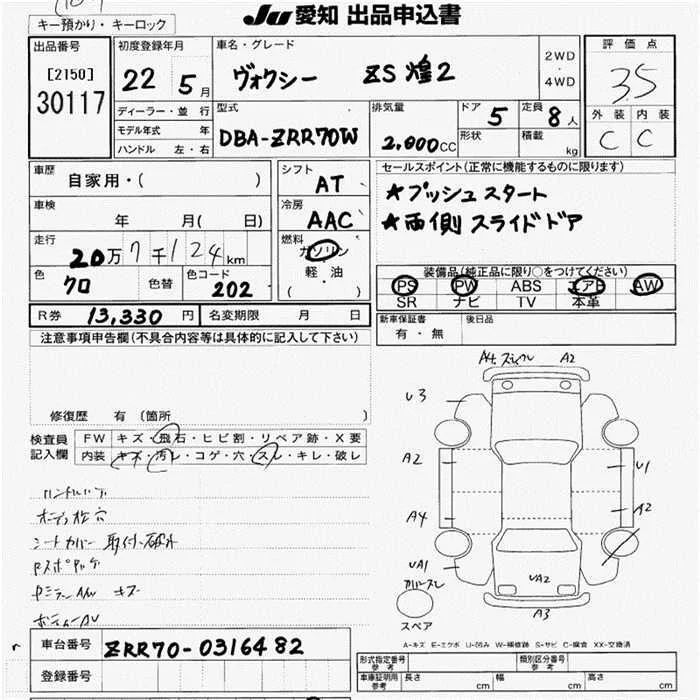 JU 愛知 出品申込書
キー預かり・キーロック
出品番号
[2150]
30117
初度登録年月
22 5月
車名・グレード
ヴォクシー ZS 煌2
2WD
・
4WD
評価点
3.5
外装 内装
C C
ディーラー・並行
モデル年式 年
ハンドル 左・右
型式
DBA-ZRR70W
排気量
2,000CC
ドア 5
形状
定員 8人
積載 kg
車歴
自家用・( )
シフト
AT
セールスポイント(正常に機能するものに限ります)
★プッシュスタート
★両側スライドドア
車検
年 月( 日)
冷房
AAC
走行
20万7千124km
燃料
ガソリン
軽・油
( ・ )
色
クロ
色替
色コード
202
装備品(純正品に限り○をつけてください)
PS PW ABS エアB AW
SR ナビ TV 本革
R券 13,330 円
名変期限 月 日
新車保証書
有・無
後日品
注意事項申告欄(不具合内容等は具体的に記入して下さい)
修復歴 有 (箇所 )
検査員
記入欄
FW キズ・飛石・ヒビ割・リペア跡・X要
内装 キズ・汚レ・コゲ・穴・スレ・キレ・破レ
シートカバー 取付・破れ
キズ
A2
U3
A2
U1
A4
A2
UA1
UA2
A3
スペア
A-キズ E-エクボ U-凹み W-補修跡 S-サビ C-腐食 XX-交換済
車台番号 ZRR70-0316482
登録番号
形式指定番号
参考
類別区分番号
参考
車庫証明用
参考
長さ cm 幅 cm 高さ cm